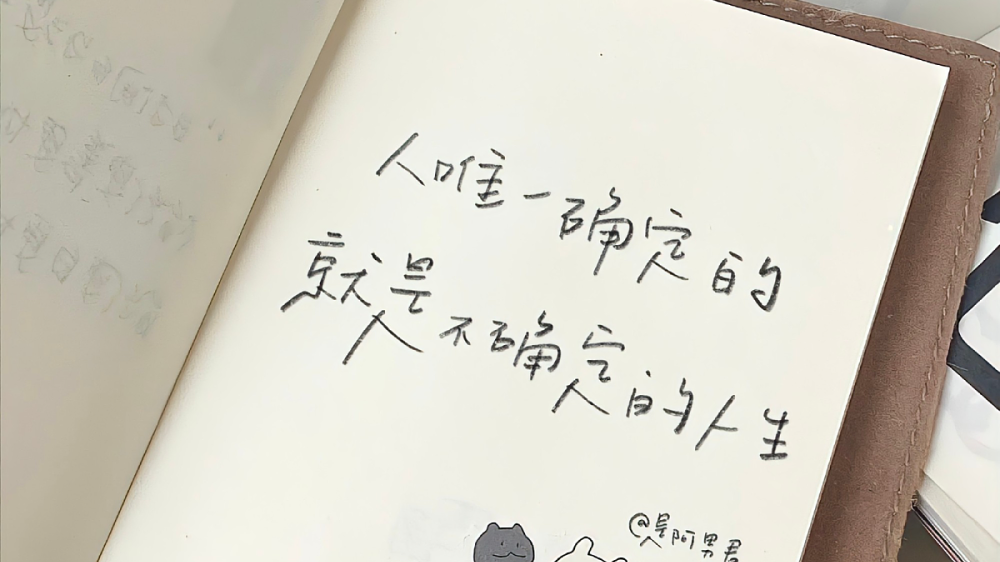 人唯一确定的
就是不确定的人生
@是阿男君